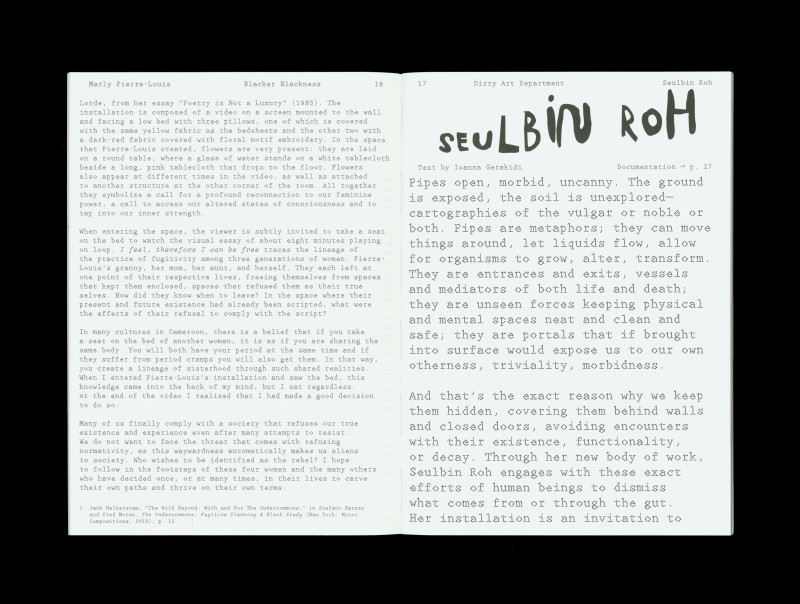 Marly Pierre-Louis Blacker Blackness 16
Lorde, from her essay "Poetry is Not a Luxury" (1985). The
installation is composed of a video on a screen mounted to the wall
and facing a low bed with three pillows, one of which is covered
with the same yellow fabric as the bedsheets and the other two with
a dark-red fabric covered with floral motif embroidery. In the space
that Pierre-Louis created, flowers are very present: they are laid
on a round table, where a glass of water stands on a white tablecloth
beside a long, pink tablecloth that drops to the floor. Flowers
also appear at different times in the video, as well as attached
to another structure at the other corner of the room. All together
they symbolize a call for a profound reconnection to our feminine
power, a call to access our altered states of consciousness and to
tap into our inner strength.
When entering the space, the viewer is subtly invited to take a seat
on the bed to watch the visual essay of about eight minutes playing
on loop. I feel, therefore I can be free traces the lineage of
the practice of fugitivity among three generations of women: Pierre-
Louis's granny, her mum, her aunt, and herself. They each left at
one point of their respective lives, freeing themselves from spaces
that kept them enclosed, spaces that refused them as their true
selves. How did they know when to leave? In the space where their
present and future existence had already been scripted, what were
the effects of their refusal to comply with the script?
In many cultures in Cameroon, there is a belief that if you take
a seat on the bed of another woman, it is as if you are sharing the
same body. You will both have your period at the same time and if
they suffer from period cramps you will also get them. In that way,
you create a lineage of sisterhood through such shared realities.
When I entered Pierre-Louis's installation and saw the bed, this
knowledge came into the back of my mind, but I sat regardless.
At the end of the video I realized that I had made a good decision
to do so.
Many of us finally comply with a society that refuses our true
existence and experience even after many attempts to resist.
We do not want to face the threat that comes with refusing
normativity, as this waywardness automatically makes us aliens
to society. Who wishes to be identified as the rebel? I hope
to follow in the footsteps of these four women and the many others
who have decided once, or at many times, in their lives to carve
their own paths and thrive on their own terms.
1. Jack Halberstam, "The Wild Beyond: With and For The Undercommons," in Stefano Harney
and Fred Moten, The Undercommons: Fugitive Planning & Black Study (New York: Minor
Compositions, 2013), p. 12.
17 Dirty Art Department Seulbin Roh
SEULBIN ROH
Text by Ioanna Gerakidi Documentation → p. 27
Pipes open, morbid, uncanny. The ground
is exposed, the soil is unexplored—
cartographies of the vulgar or noble or
both. Pipes are metaphors; they can move
things around, let liquids flow, allow
for organisms to grow, alter, transform.
They are entrances and exits, vessels
and mediators of both life and death;
they are unseen forces keeping physical
and mental spaces neat and clean and
safe; they are portals that if brought
into surface would expose us to our own
otherness, triviality, morbidness.
And that's the exact reason why we keep
them hidden, covering them behind walls
and closed doors, avoiding encounters
with their existence, functionality,
or decay. Through her new body of work,
Seulbin Roh engages with these exact
efforts of human beings to dismiss
what comes from or through the gut.
Her installation is an invitation to